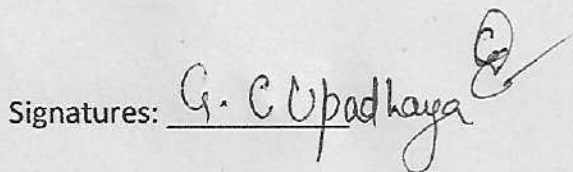 Signatures: G. C Upadhaya